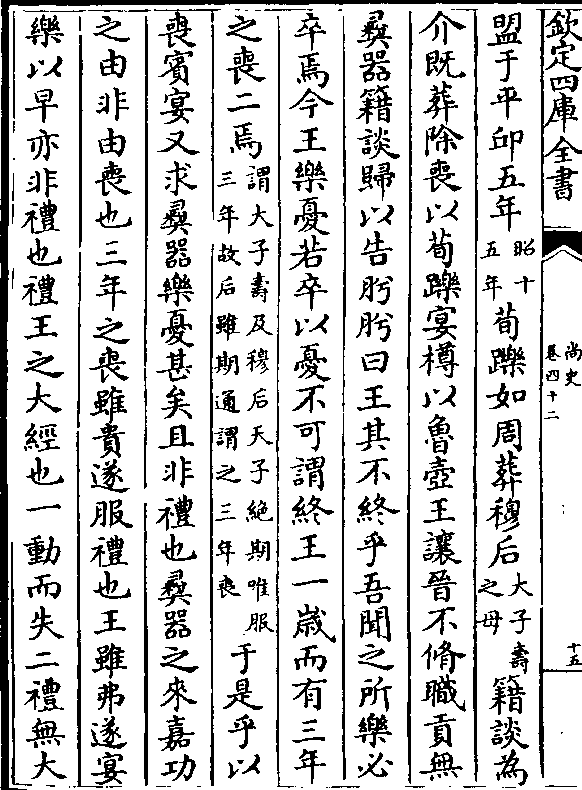 欽定四庫全書
尚史
卷四十二
十五
盟于平卯五年昭十五年荀躒如周葬穆后大子壽之母籍談為
介既葬除喪以荀躒宴樽以魯壺王讓晉不脩職貢無
彛器籍談歸以告肸肸曰王其不終乎吾聞之所樂必
卒焉今王樂憂若卒以憂不可謂終王一歳而有三年
之喪二焉謂大子壽及穆后天子絶期唯服三年故后雖期通謂之三年喪于是乎以
喪賓宴又求彛器樂憂甚矣且非禮也彛器之來嘉功
之由非由喪也三年之喪雖貴遂服禮也王雖弗遂宴
樂以早亦非禮也禮王之大經也一動而失二禮無大